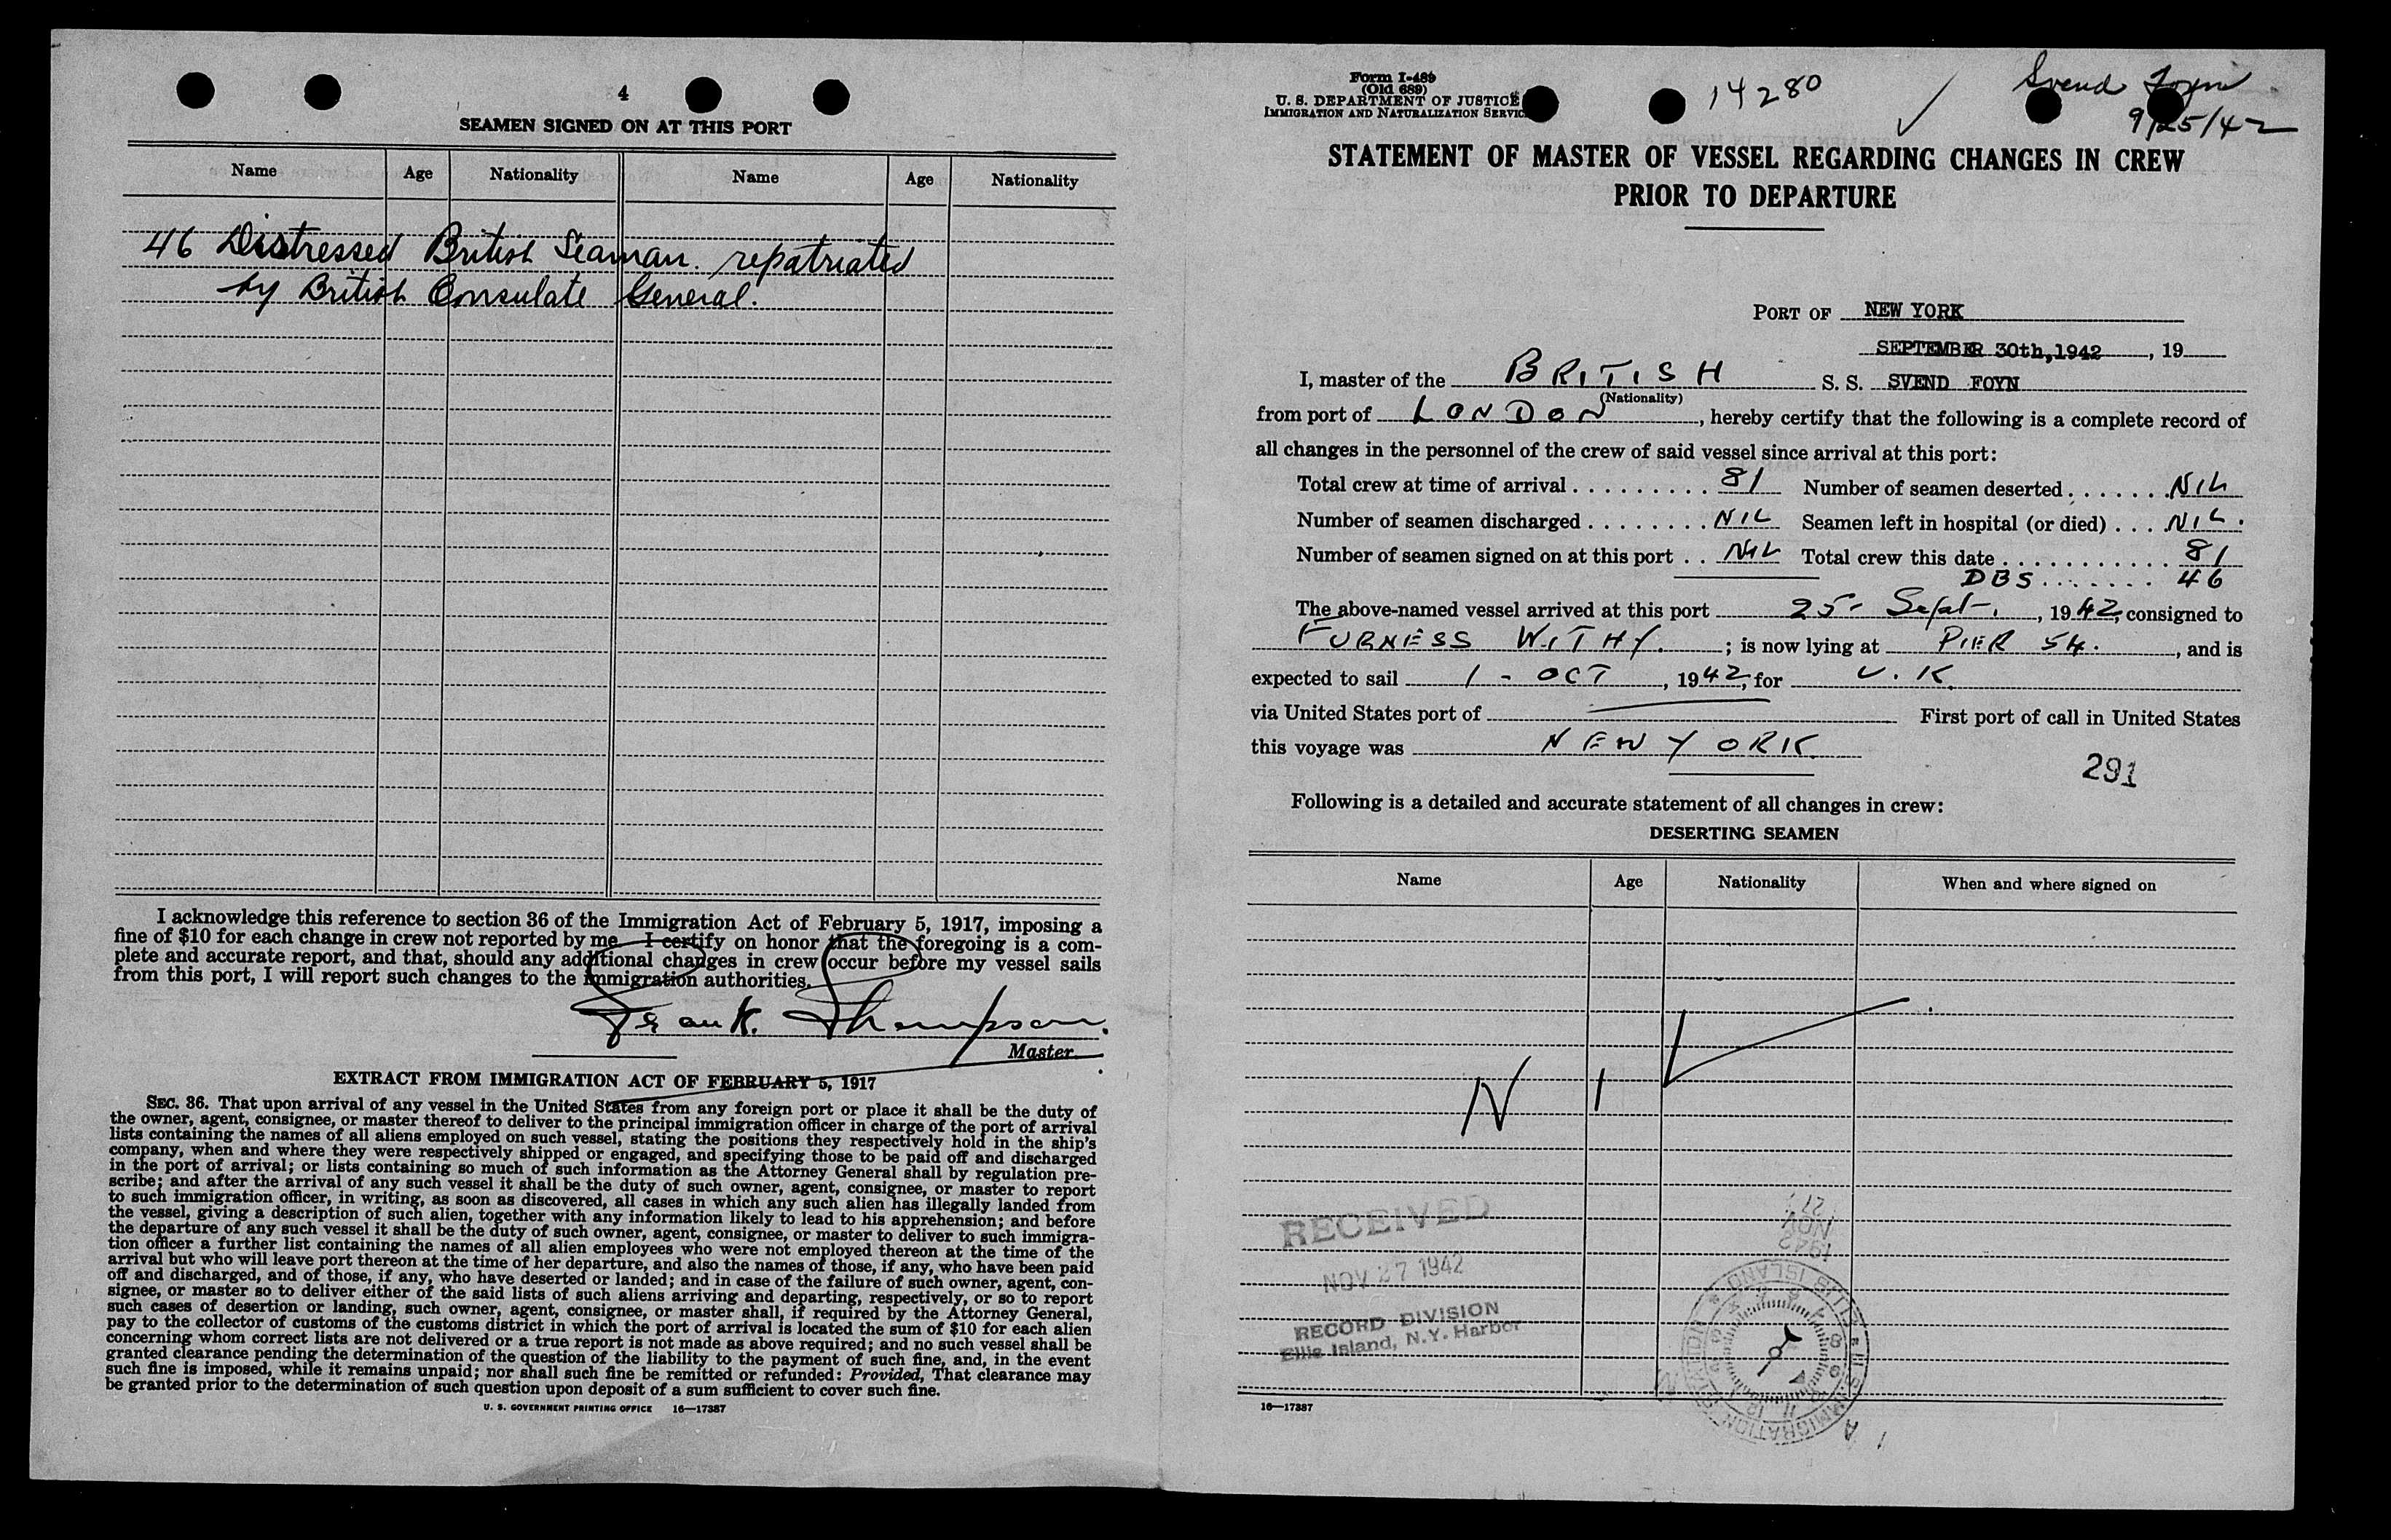 4
SEAMEN SIGNED ON AT THIS PORT
Name Age Nationality Name Age Nationality
46 Distressed British Seaman. repatriated
by British Consulate General.
I acknowledge this reference to section 36 of the Immigration Act of February 5, 1917, imposing a
fine of $10 for each change in crew not reported by me. I certify on honor that the foregoing is a com-
plete and accurate report, and that, should any additional changes in crew occur before my vessel sails
from this port, I will report such changes to the immigration authorities.
Frank. Thompson.
Master.
EXTRACT FROM IMMIGRATION ACT OF FEBRUARY 5, 1917
SEC. 36. That upon arrival of any vessel in the United States from any foreign port or place it shall be the duty of
the owner, agent, consignee, or master thereof to deliver to the principal immigration officer in charge of the port of arrival
lists containing the names of all aliens employed on such vessel, stating the positions they respectively hold in the ship's
company, when and where they were respectively shipped or engaged, and specifying those to be paid off and discharged
in the port of arrival; or lists containing so much of such information as the Attorney General shall by regulation pre-
scribe; and after the arrival of any such vessel it shall be the duty of such owner, agent, consignee, or master to report
to such immigration officer, in writing, as soon as discovered, all cases in which any such alien has illegally landed from
the vessel, giving a description of such alien, together with any information likely to lead to his apprehension; and before
the departure of any such vessel it shall be the duty of such owner, agent, consignee, or master to deliver to such immigra-
tion officer a further list containing the names of all alien employees who were not employed thereon at the time of the
arrival but who will leave port thereon at the time of her departure, and also the names of those, if any, who have been paid
off and discharged, and of those, if any, who have deserted or landed; and in case of the failure of such owner, agent, con-
signee, or master so to deliver either of the said lists of such aliens arriving and departing, respectively, or so to report
such cases of desertion or landing, such owner, agent, consignee, or master shall, if required by the Attorney General,
pay to the collector of customs of the customs district in which the port of arrival is located the sum of $10 for each alien
concerning whom correct lists are not delivered or a true report is not made as above required; and no such vessel shall be
granted clearance pending the determination of the question of the liability to the payment of such fine, and, in the event
such fine is imposed, while it remains unpaid; nor shall such fine be remitted or refunded: Provided, That clearance may
be granted prior to the determination of such question upon deposit of a sum sufficient to cover such fine.
U. S. GOVERNMENT PRINTING OFFICE 16—17387
Form I-489
(Old 689)
U. S. DEPARTMENT OF JUSTICE
IMMIGRATION AND NATURALIZATION SERVICE
14280
Svend Foyn
9/25/42
STATEMENT OF MASTER OF VESSEL REGARDING CHANGES IN CREW
PRIOR TO DEPARTURE
PORT OF NEW YORK
SEPTEMBER 30th, 1942, 19
I, master of the BRITISH S. S. SVEND FOYN
(Nationality)
from port of LONDON, hereby certify that the following is a complete record of
all changes in the personnel of the crew of said vessel since arrival at this port:
Total crew at time of arrival . . . . . . . . . 81 Number of seamen deserted . . . . . . . NIL
Number of seamen discharged . . . . . . . . NIL Seamen left in hospital (or died) . . . NIL.
Number of seamen signed on at this port . . NIL Total crew this date . . . . . . . . . . . . 81
DBS . . . . . . . 46
The above-named vessel arrived at this port 25- Sept-., 1942, consigned to
FURNESS WITHY.; is now lying at PIER 54., and is
expected to sail 1 - OCT, 1942, for U. K.
via United States port of First port of call in United States
this voyage was NEW YORK.
291
Following is a detailed and accurate statement of all changes in crew:
DESERTING SEAMEN
Name Age Nationality When and where signed on
N I L
RECEIVED
NOV 27 1942
RECORD DIVISION
Ellis Island, N.Y. Harbor
27
NOV
1942
16—17387